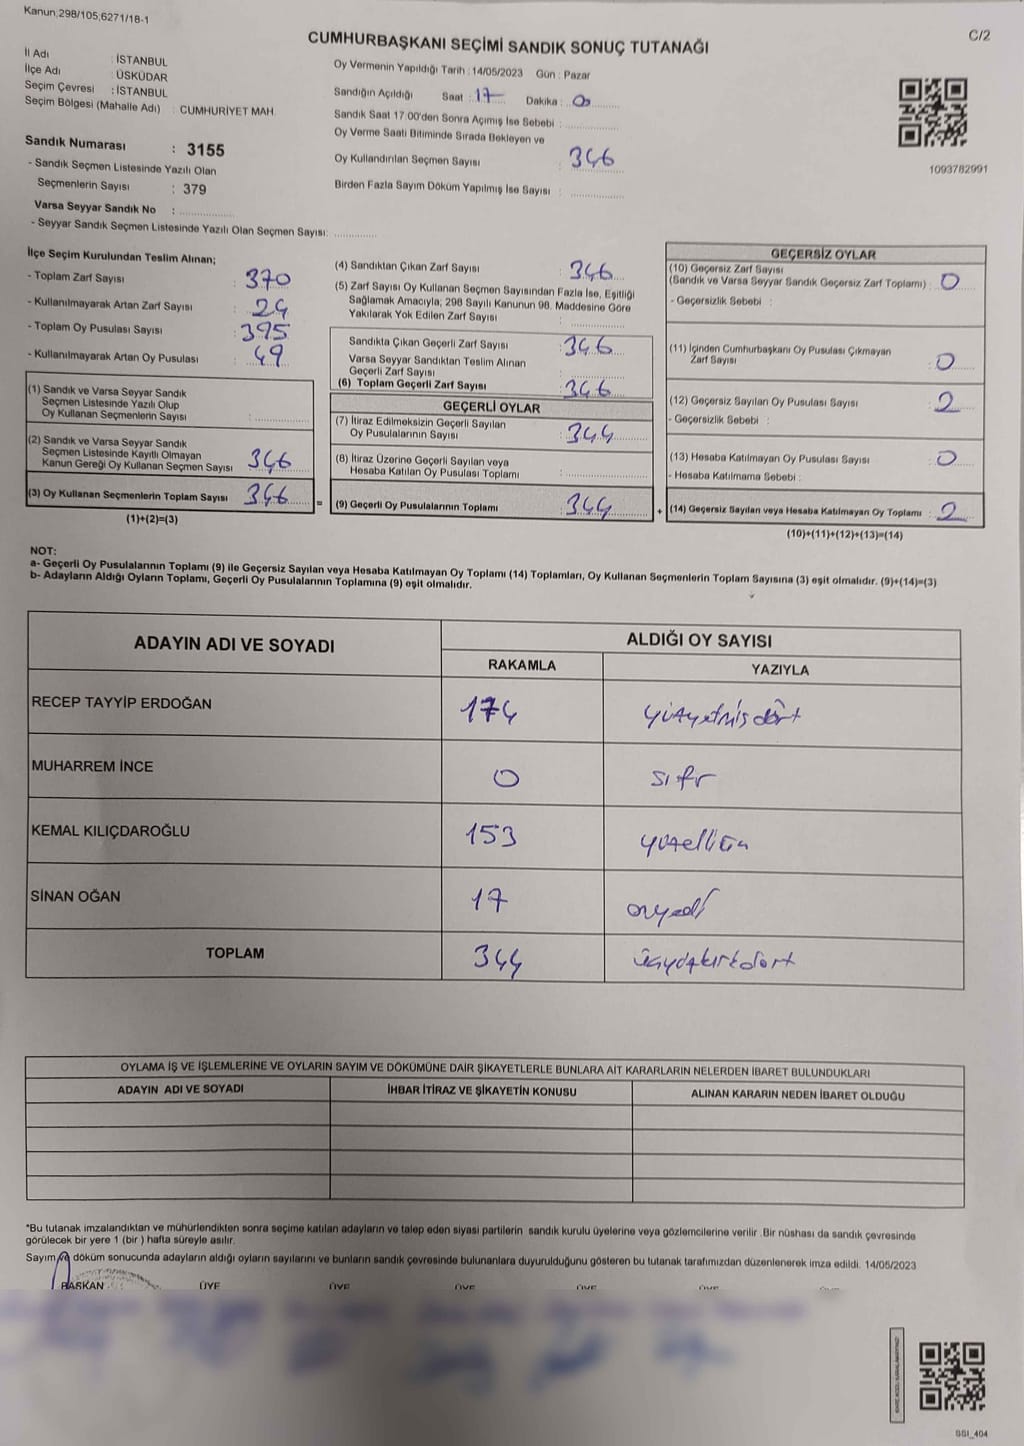 Kanun,298/105,6271/18-1
C/2
CUMHURBAŞKANI SEÇİMİ SANDIK SONUÇ TUTANAĞI
İl Adı : İSTANBUL
İlçe Adı : ÜSKÜDAR
Seçim Çevresi : İSTANBUL
Seçim Bölgesi (Mahalle Adı) : CUMHURİYET MAH.
Sandık Numarası : 3155
- Sandık Seçmen Listesinde Yazılı Olan
Seçmenlerin Sayısı : 379
Varsa Seyyar Sandık No :
- Seyyar Sandık Seçmen Listesinde Yazılı Olan Seçmen Sayısı:
Oy Vermenin Yapıldığı Tarih : 14/05/2023 Gün : Pazar
Sandığın Açıldığı Saat : 17 Dakika :
Sandık Saat 17.00'den Sonra Açılmış İse Sebebi :
Oy Verme Saati Bitiminde Sırada Bekleyen ve
Oy Kullandırılan Seçmen Sayısı : 346
Birden Fazla Sayım Döküm Yapılmış İse Sayısı :
1093782991
İlçe Seçim Kurulundan Teslim Alınan;
- Toplam Zarf Sayısı : 370
- Kullanılmayarak Artan Zarf Sayısı : 24
- Toplam Oy Pusulası Sayısı : 395
- Kullanılmayarak Artan Oy Pusulası : 49
(1) Sandık ve Varsa Seyyar Sandık
Seçmen Listesinde Yazılı Olup
Oy Kullanan Seçmenlerin Sayısı :
(2) Sandık ve Varsa Seyyar Sandık
Seçmen Listesinde Kayıtlı Olmayan
Kanun Gereği Oy Kullanan Seçmen Sayısı 346
(3) Oy Kullanan Seçmenlerin Toplam Sayısı : 346
(1)+(2)=(3)
(4) Sandıktan Çıkan Zarf Sayısı : 346
(5) Zarf Sayısı Oy Kullanan Seçmen Sayısından Fazla İse, Eşitliği
Sağlamak Amacıyla; 298 Sayılı Kanunun 98. Maddesine Göre
Yakılarak Yok Edilen Zarf Sayısı :
Sandıkta Çıkan Geçerli Zarf Sayısı : 346
Varsa Seyyar Sandıktan Teslim Alınan
Geçerli Zarf Sayısı :
(6) Toplam Geçerli Zarf Sayısı : 346
GEÇERLİ OYLAR
(7) İtiraz Edilmeksizin Geçerli Sayılan
Oy Pusulalarının Sayısı : 344
(8) İtiraz Üzerine Geçerli Sayılan veya
Hesaba Katılan Oy Pusulası Toplamı :
= (9) Geçerli Oy Pusulalarının Toplamı : 344
GEÇERSİZ OYLAR
(10) Geçersiz Zarf Sayısı
(Sandık ve Varsa Seyyar Sandık Geçersiz Zarf Toplamı) : 0
- Geçersizlik Sebebi :
(11) İçinden Cumhurbaşkanı Oy Pusulası Çıkmayan
Zarf Sayısı : 0
(12) Geçersiz Sayılan Oy Pusulası Sayısı : 2
- Geçersizlik Sebebi :
(13) Hesaba Katılmayan Oy Pusulası Sayısı : 0
- Hesaba Katılmama Sebebi :
+ (14) Geçersiz Sayılan veya Hesaba Katılmayan Oy Toplamı : 2
(10)+(11)+(12)+(13)=(14)
NOT:
a- Geçerli Oy Pusulalarının Toplamı (9) ile Geçersiz Sayılan veya Hesaba Katılmayan Oy Toplamı (14) Toplamları, Oy Kullanan Seçmenlerin Toplam Sayısına (3) eşit olmalıdır. (9)+(14)=(3)
b- Adayların Aldığı Oyların Toplamı, Geçerli Oy Pusulalarının Toplamına (9) eşit olmalıdır.
ADAYIN ADI VE SOYADI ALDIĞI OY SAYISI
RAKAMLA YAZIYLA
RECEP TAYYİP ERDOĞAN 174 yüzyetmişdört
MUHARREM İNCE 0 sıfır
KEMAL KILIÇDAROĞLU 153 yüzelliüç
SİNAN OĞAN 17 onyedi
TOPLAM 344 üçyüzkırkdört
OYLAMA İŞ VE İŞLEMLERİNE VE OYLARIN SAYIM VE DÖKÜMÜNE DAİR ŞİKAYETLERLE BUNLARA AİT KARARLARIN NELERDEN İBARET BULUNDUKLARI
ADAYIN ADI VE SOYADI İHBAR İTİRAZ VE ŞİKAYETİN KONUSU ALINAN KARARIN NEDEN İBARET OLDUĞU
*Bu tutanak imzalandıktan ve mühürlendikten sonra seçime katılan adayların ve talep eden siyasi partilerin sandık kurulu üyelerine veya gözlemcilerine verilir. Bir nüshası da sandık çevresinde
görülecek bir yere 1 (bir) hafta süreyle asılır.
Sayım ve döküm sonucunda adayların aldığı oyların sayılarını ve bunların sandık çevresinde bulunanlara duyurulduğunu gösteren bu tutanak tarafımızdan düzenlenerek imza edildi. 14/05/2023
BAŞKAN ÜYE ÜYE ÜYE ÜYE ÜYE
SSI_404